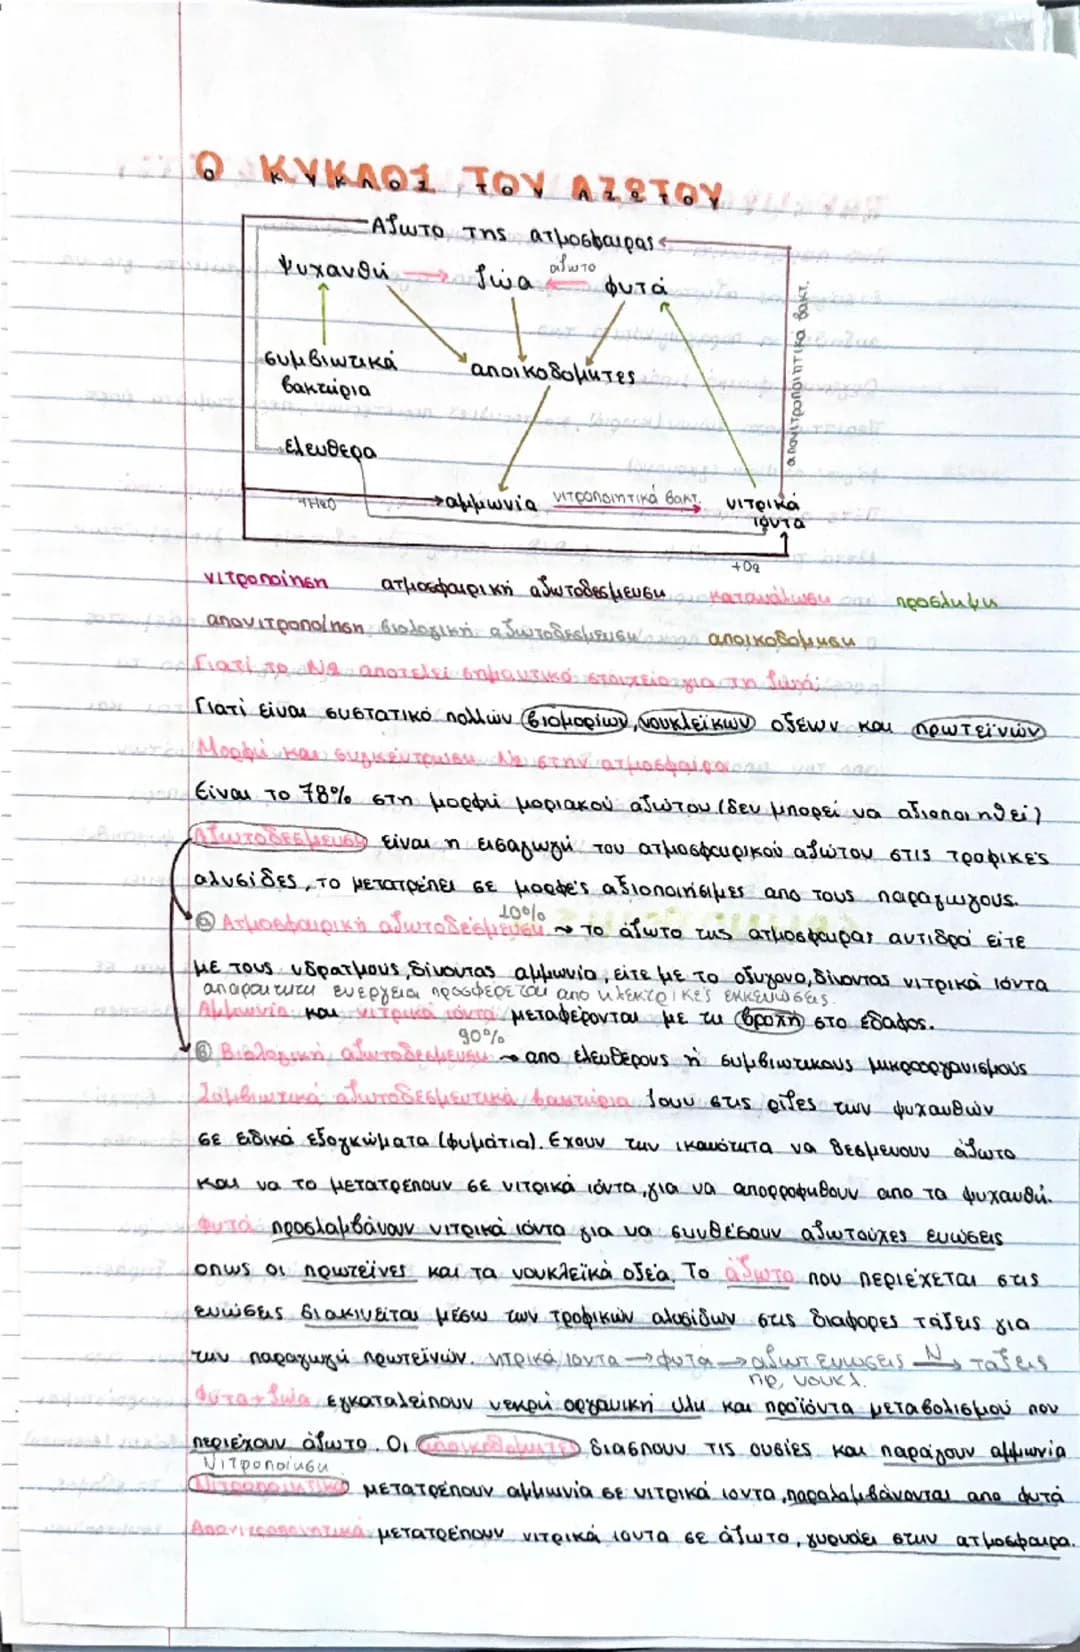 Ο ΚΥΚΛΟΣ ΤΟΥ ΑΖΩΤΟΥ
Αζωτο της ατμοσφαιρας
Ψυχανθή ζώα αζωτο φυτά
συμβιωτικά
βακτήρια
αποικοδομητες
απονιτροποιητικά βακτ.
ελευθερα
+H2O αμμωνία νιτροποιητικά βακτ. νιτρικά
ιόντα
+O2
νιτροποίηση ατμοσφαιρική αζωτοδεσμευση κατανάλωση προσληψη
απονιτροποίηση βιολογική αζωτοδεσμευση αποικοδομηση
Γιατί το N2 αποτελεί σημαντικό στοιχείο για τη ζωή;
Γιατί είναι συστατικό πολλών βιομορίων, νουκλεϊκων οξέων και πρωτεϊνών
Μορφή και συγκέντρωση N2 στην ατμοσφαιρα
Είναι το 78% στη μορφή μοριακού αζώτου (δεν μπορεί να αξιοποιηθεί)
Αζωτοδεσμευση είναι η εισαγωγή του ατμοσφαιρικού αζώτου στις τροφικές
αλυσίδες, το μετατρέπει σε μορφές αξιοποιήσιμες απο τους παραγωγους.
10%
α Ατμοσφαιρική αζωτοδέσμευση ~ το άζωτο της ατμοσφαιρας αντιδρά είτε
με τους υδρατμους, δίνοντας αμμωνία, είτε με το οξυγονο, δίνοντας νιτρικά ιόντα
απαραιτητη ενεργεια προσφέρεται απο ηλεκτρικές εκκενώσεις.
Αμμωνία και νιτρικά ιόντα μεταφέρονται με τη βροχή στο έδαφος.
90%
β Βιολογική αζωτοδεσμευση → απο ελευθέρους ή συμβιωτικους μικροοργανισμούς
Συμβιωτικά αζωτοδεσμευτικά βακτήρια ζουν στις ρίζες των ψυχανθών
σε ειδικά εξογκώματα (φυμάτια). Εχουν την ικανότητα να δεσμευουν άζωτο
και να το μετατρέπουν σε νιτρικά ιόντα, για να απορροφηθουν απο τα ψυχανθή.
Φυτά προσλαμβάνουν νιτρικά ιόντα για να συνθέσουν αζωτούχες ενώσεις
οπως οι πρωτεϊνες και τα νουκλεϊκά οξέα. Το άζωτο που περιέχεται στις
ενώσεις διακινείται μέσω των τροφικών αλυσίδων στις διαφορες τάξεις για
την παραγωγή πρωτεϊνών. νιτρικά ιοντα → φυτά → αζωτ ενωσεις N → ταξεις
πρ, νουκλ.
Φυτα + ζώα εγκαταλείπουν νεκρή οργανική υλη και προϊόντα μεταβολισμού που
περιέχουν άζωτο. Οι αποικοδομητες διασπουν τις ουσίες και παράγουν αμμωνία
Νιτροποίηση
Νιτροποιητικά μετατρέπουν αμμωνία σε νιτρικά ιοντα, παραλαμβάνονται απο φυτά
Απονιτροποιητικά μετατρέπουν νιτρικά ιοντα σε άζωτο, γυρνάει στην ατμοσφαιρα.